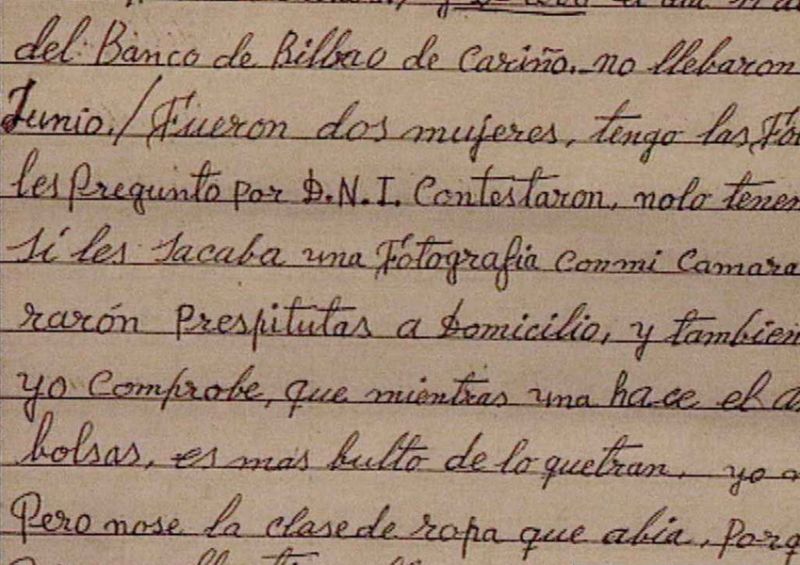 del Banco de Bilbao de Cariño. no llebaron
Junio. / Fueron dos mujeres, tengo las
les Pregunto por D.N.I. Contestaron, nolo tenen
Si les sacaba una Fotografia conmi Camara
rarón Prespitutas a Domicilio, y tambien
yo Comprobe, que mientras una hace el
bolsas, es mas bulto de lo quetran, yo
Pero nose la clasede ropa que abia, Porq